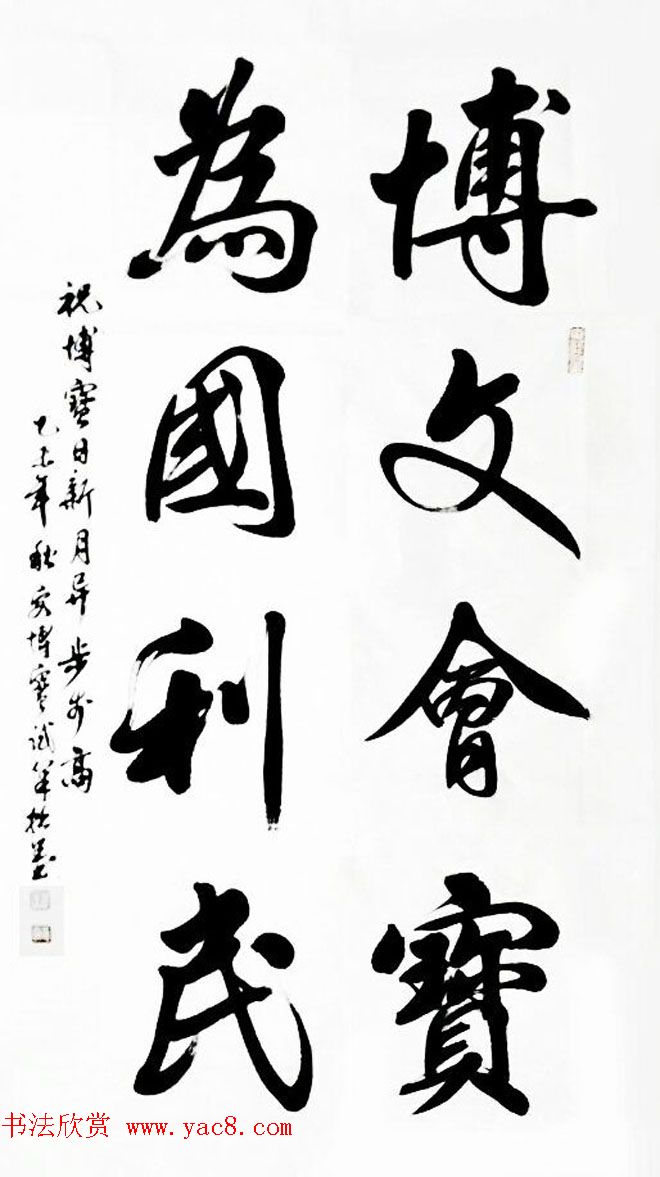 博文會寶
為國利民
祝博寶日新月异步步高
乙未年秋安博寶試筆拙墨
书法欣赏 www.yac8.com